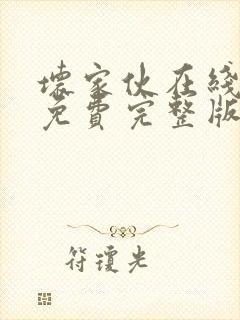 壞家伙在綫
免費完整版
符瓊光